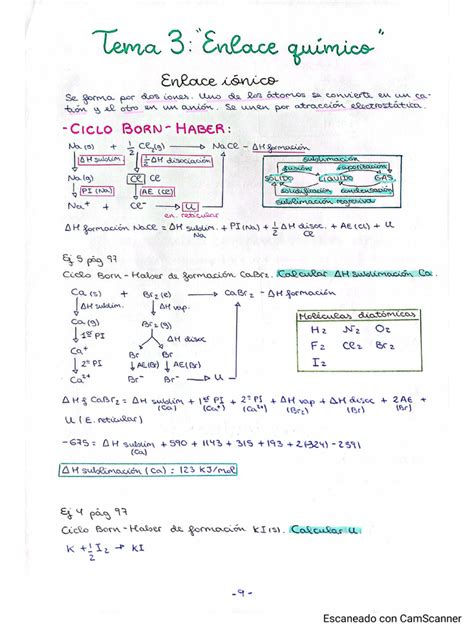 Tema 3: "Enlace químico"
Enlace iónico
Se forma por dos iones. Uno de los átomos se convierte en un ca-
tión y el otro en un anión. Se unen por atracción electrostática.
- CICLO BORN - HABER:
Na (s) + 1/2 Cl2 (g) → NaCl - ΔH formación
ΔH sublim 1/2 ΔH disociación
Na (g) Cl Cl
PI (Na) AE (Cl)
Na+ + Cl- → U
en. reticular
sublimación
fusión vaporización
SÓLIDO LÍQUIDO GAS
solidificación condensación
sublimación regresiva
ΔH formación NaCl = ΔH sublim. + PI (Na) + 1/2 ΔH disoc. + AE (Cl) + U
Na Cl
Ej 5 pág 97
Ciclo Born - Haber de formación CaBr2. Calcular ΔH sublimación Ca.
Ca (s) + Br2 (l) → CaBr2 - ΔH formación
ΔH sublim. ΔH vap.
Ca (g) Br2 (g)
1er PI ΔH disoc
Ca+ Br Br
2º PI AE (Br) AE (Br)
Ca2+ Br- Br- → U
Moléculas diatómicas
H2 N2 O2
F2 Cl2 Br2
I2
ΔHf CaBr2 = ΔH sublim + 1er PI + 2º PI + ΔH vap + ΔH disoc + 2AE +
(Ca) (Ca+) (Ca2+) (Br2) (Br) (Br)
U (E. reticular)
-675 = ΔH sublim + 590 + 1143 + 315 + 193 + 2(-324) - 2391
(Ca)
ΔH sublimación (Ca) = 123 KJ/mol
Ej 4 pág 97
Ciclo Born - Haber de formación KI (s). Calcular U.
K + 1/2 I2 → KI
- 9 -
Escaneado con CamScanner